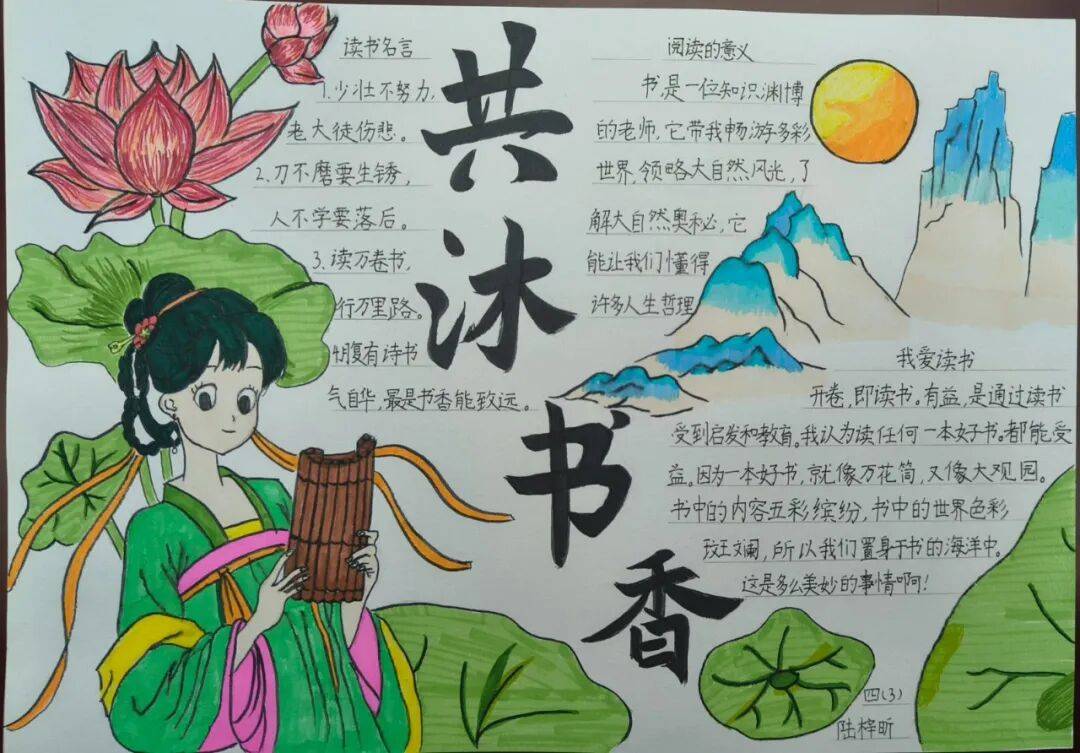 共沐书香
读书名言
1.少壮不努力,
老大徒伤悲。
2.刀不磨要生锈,
人不学要落后。
3.读万卷书,
行万里路。
4.腹有诗书
气自华,最是书香能致远。
阅读的意义
书,是一位知识渊博
的老师,它带我畅游多彩
世界,领略大自然风光,了
解大自然奥秘,它
能让我们懂得
许多人生哲理
我爱读书
开卷,即读书。有益,是通过读书
受到启发和教育。我认为读任何一本好书。都能受
益。因为一本好书,就像万花筒,又像大观园。
书中的内容五彩缤纷,书中的世界色彩
斓,所以我们置身于书的海洋中。
这是多么美妙的事情啊!
四(3)
陆梓昕